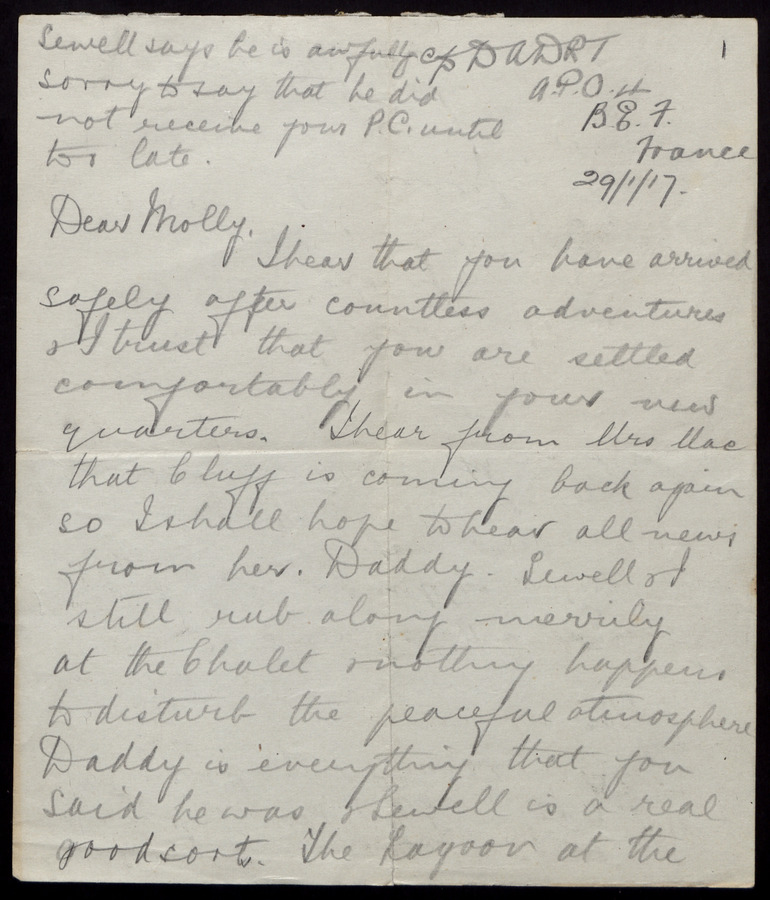 Sewell says he is awfully
sorry to say that he did
not receive your P.C. until
too late.
1
c/o D A D R T
A.P.O. 4
B.E.F.
France
29/1/17.
Dear Molly.
I hear that you have arrived
safely after countless adventures
& I trust that you are settled
comfortably in your new
quarters. I hear from Mrs Mac
that Cluff is coming back again
so I shall hope to hear all news
from her. Daddy. Sewell & I
still rub along merrily
at the Chalet & nothing happens
to disturb the peaceful atmosphere
Daddy is everything that you
said he was & Sewell is a real
good sort. The Lagoon at the